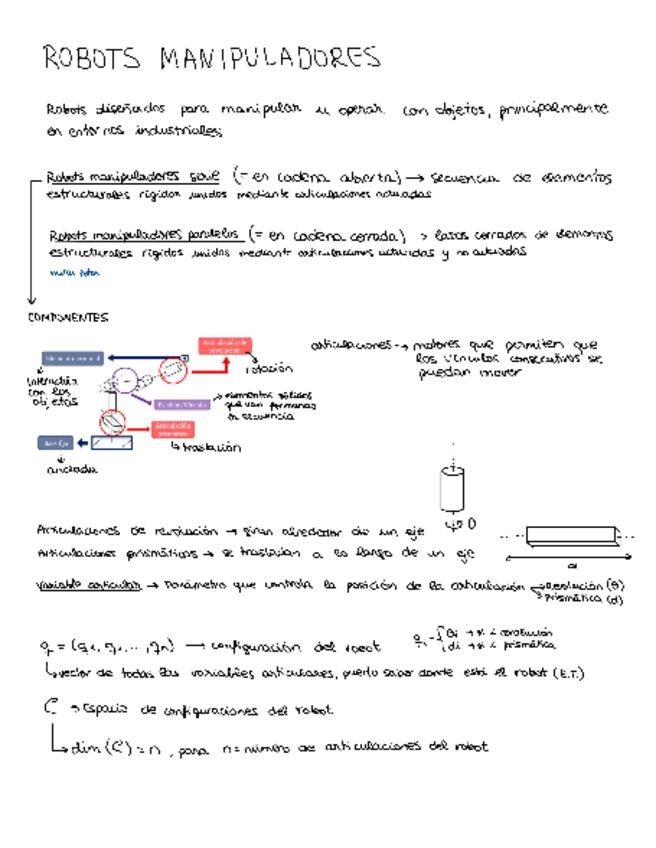 ROBOTS MANIPULADORES
Robots diseñados para manipular u operar con objetos, principalmente
en entornos industriales;
Robots manipuladores serie (= en cadena abierta) → secuencia de elementos
estructurales rígidos unidos mediante articulaciones actuadas
Robots manipuladores paralelos (= en cadena cerrada) → lazos cerrados de elementos
estructurales rígidos unidos mediante articulaciones actuadas y no actuadas
COMPONENTES
Articulación de revolución
Elemento terminal
rotación
interactúa
con los
objetos
Eslabón/Vínculo
→ elementos sólidos
que van formando
la secuencia
Articulación prismática
↳ traslación
Base fija
anclada
articulaciones → motores que permiten que
los vínculos consecutivos se
puedan mover
θ
Articulaciones de revolución → giran alrededor de un eje
Articulaciones prismáticas → se trasladan a lo largo de un eje
d
Variable articular → Parámetro que controla la posición de la articulación → revolución (θ)
prismática (d)
q = (q₁, q₂, ..., qₙ) → configuración del robot
qᵢ = { θi → si i revolución
di → si i prismática
↳ vector de todas las variables articulares, puedo saber donde está el robot (E.T.)
C → Espacio de configuraciones del robot
↳ dim (C) = n, para n = número de articulaciones del robot